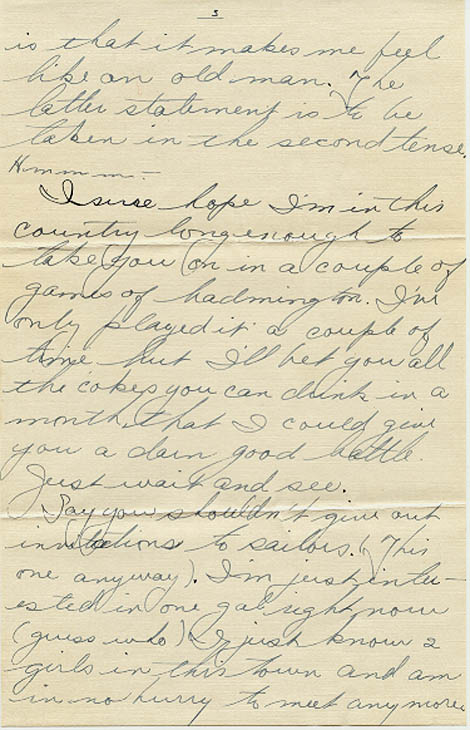 3
is that it makes me feel
like an old man. The
latter statement is to be
taken in the second tense.
Hmmmm-
I sure hope I'm in this
country long enough to
take you on in a couple of
games of badmington. I've
only played it a couple of
time but I'll bet you all
the cokes you can drink in a
month, that I could give
you a darn good battle.
Just wait and see.
Say you shouldn't give out
invitations to sailors. (This
one anyway). I'm just inter-
ested in one gal right now
(guess who) I just know 2
girls in this town and am
in no hurry to meet anymore.